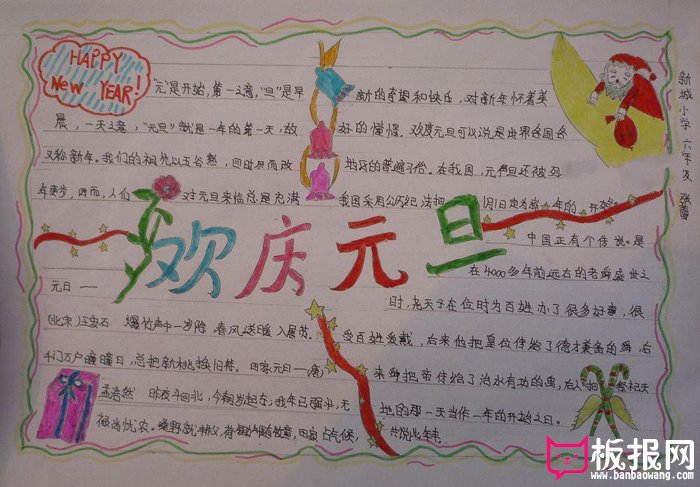 HAPPY
New YEAR!
"元"是开始,第一之意,"旦"是早
晨,一天之意,"元旦"就是一年的第一天,故
又称新年。我们的祖先以五谷熟,
年更岁,因而,人们 对元旦来临总是充满
新的希望和快乐,对新年怀着美
好的憧憬。欢度元旦可以说是世界各国各
地区的普遍习俗。在我国,元旦还被列
我国采用公历纪
中国正有个传说。是
在4000多年前远古的老舜盛世之
时,老天子在位时为百姓办了很多好事,很
受百姓爱戴,后来他把皇位传给了德才兼备的舜,后
来舜把帝传给了治水有功的禹,后人把 祭祀天
地的那一天当作一年的开始之日。
欢庆元旦
元日——
(北宋)王安石 爆竹声中一岁除 春风送暖入屠苏
千门万户曈曈日,总把新桃换旧符。田家元日——(唐)
孟浩然 昨夜斗回北,今朝岁起东;我年已强壮,无
禄尚忧农。桑野就耕父,荷锄随牧童,田家占气候,
共说此年丰
新城小学 六年级
板报网
www.banbaowang.com